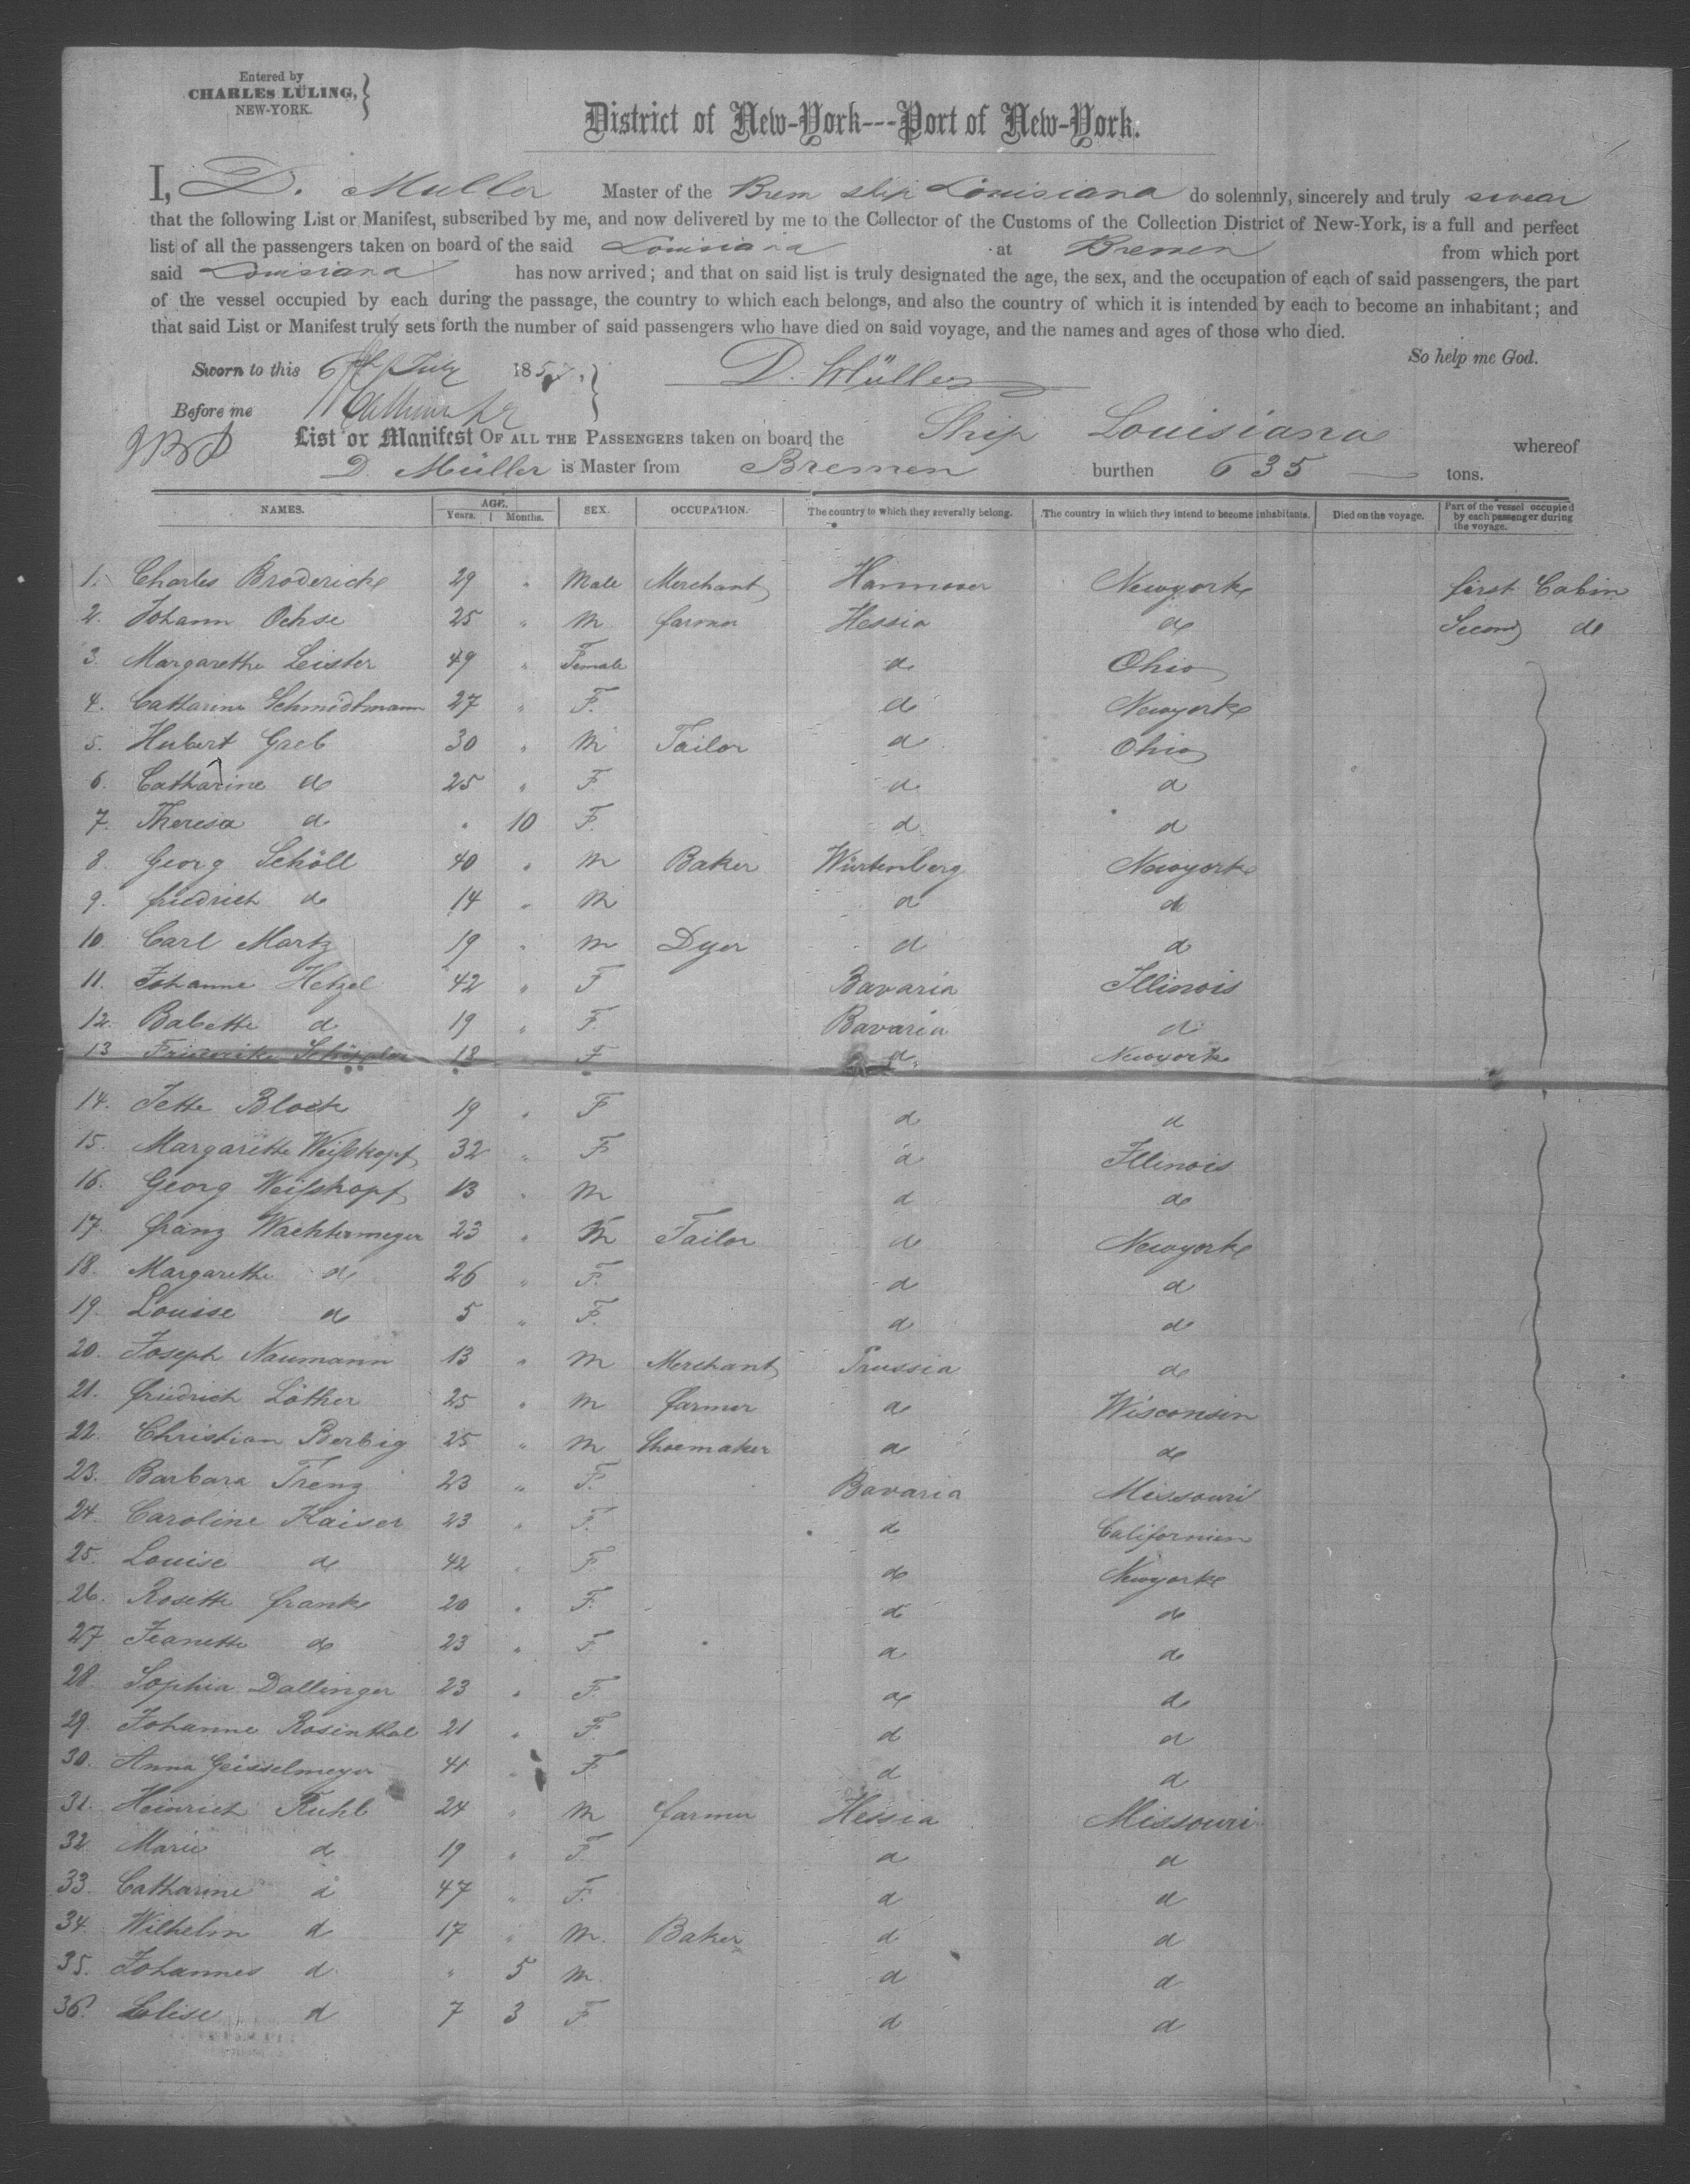 Entered by
CHARLES LÜLING,
NEW-YORK.
District of New-York---Port of New-York.
I, D. Muller Master of the Brem ship Louisiana do solemnly, sincerely and truly swear
that the following List or Manifest, subscribed by me, and now delivered by me to the Collector of the Customs of the Collection District of New-York, is a full and perfect
list of all the passengers taken on board of the said Louisiana at Bremen from which port
said Louisiana has now arrived; and that on said list is truly designated the age, the sex, and the occupation of each of said passengers, the part
of the vessel occupied by each during the passage, the country to which each belongs, and also the country of which it is intended by each to become an inhabitant; and
that said List or Manifest truly sets forth the number of said passengers who have died on said voyage, and the names and ages of those who died.
So help me God.
Sworn to this 6th July 185 D. Müller
Before me
List or Manifest OF ALL THE PASSENGERS taken on board the Ship Louisiana whereof
D. Müller is Master from Bremen burthen 635 tons.
NAMES. AGE. Years. Months. SEX. OCCUPATION. The country to which they severally belong. The country in which they intend to become inhabitants. Died on the voyage. Part of the vessel occupied by each passenger during the voyage.
1. Charles Brodericke 29 " Male Merchant Hannover Newyorke first Cabin
2. Johann Ochse 25 " M farmer Hessia do Second do
3. Margarethe Leister 49 " Female d. Ohio
4. Catharine Schmidtmann 27 " F. do Newyorke
5. Hubert Greb 30 " M Tailor d Ohio
6. Catharine do 25 " F d d
7. Theresa d " 10 F. d d
8. Georg Schöll 40 " M Baker Würtenberg Newyorke
9. friedrich do 14 " M d do
10. Carl Martz 19 " M Dyer d d
11. Johanne Hetzel 42 " F Bavaria Illinois
12. Babette d 19 " F Bavaria d
13 Friederike 18 F d Newyorke
14. Jette Block 19 " F d d
15. Margarethe Weißkopf 32 " F d Illinois
16. Georg Weißkopf 13 " M d do
17. franz Wachtermeyer 23 " M Tailor do Newyorke
18. Margarethe do 26 " F. d d
19. Louise do 5 " F. d d
20. Joseph Naumann 13 " M Merchant Prussia do
21. friedrich Löther 25 " M farmer do Wisconsin
22. Christian Berbig 25 " M Shoemaker d do
23. Barbara Trenz 23 " F. Bavaria Missouri
24. Caroline Kaiser 23 " F. d Californien
25. Louise do 42 " F do Newyorke
26. Rosette franke 20 " F. d do
27 Jeanette do 23 " F. d do
28 Sophia Dallinger 23 " F. do d
29. Johanne Rosenthal 21 " F. d d
30. Anna Geisselmeyer 41 " F d d
31. Heinrich Ruhl 24 " M farmer Hessia Missouri
32 Marie d 19 " F. d d
33. Catharine d 47 " F. d d
34. Wilhelm d 17 " M. Baker d d
35. Johannes d " 5 M. d d
36. Elise d 7 3 F d d